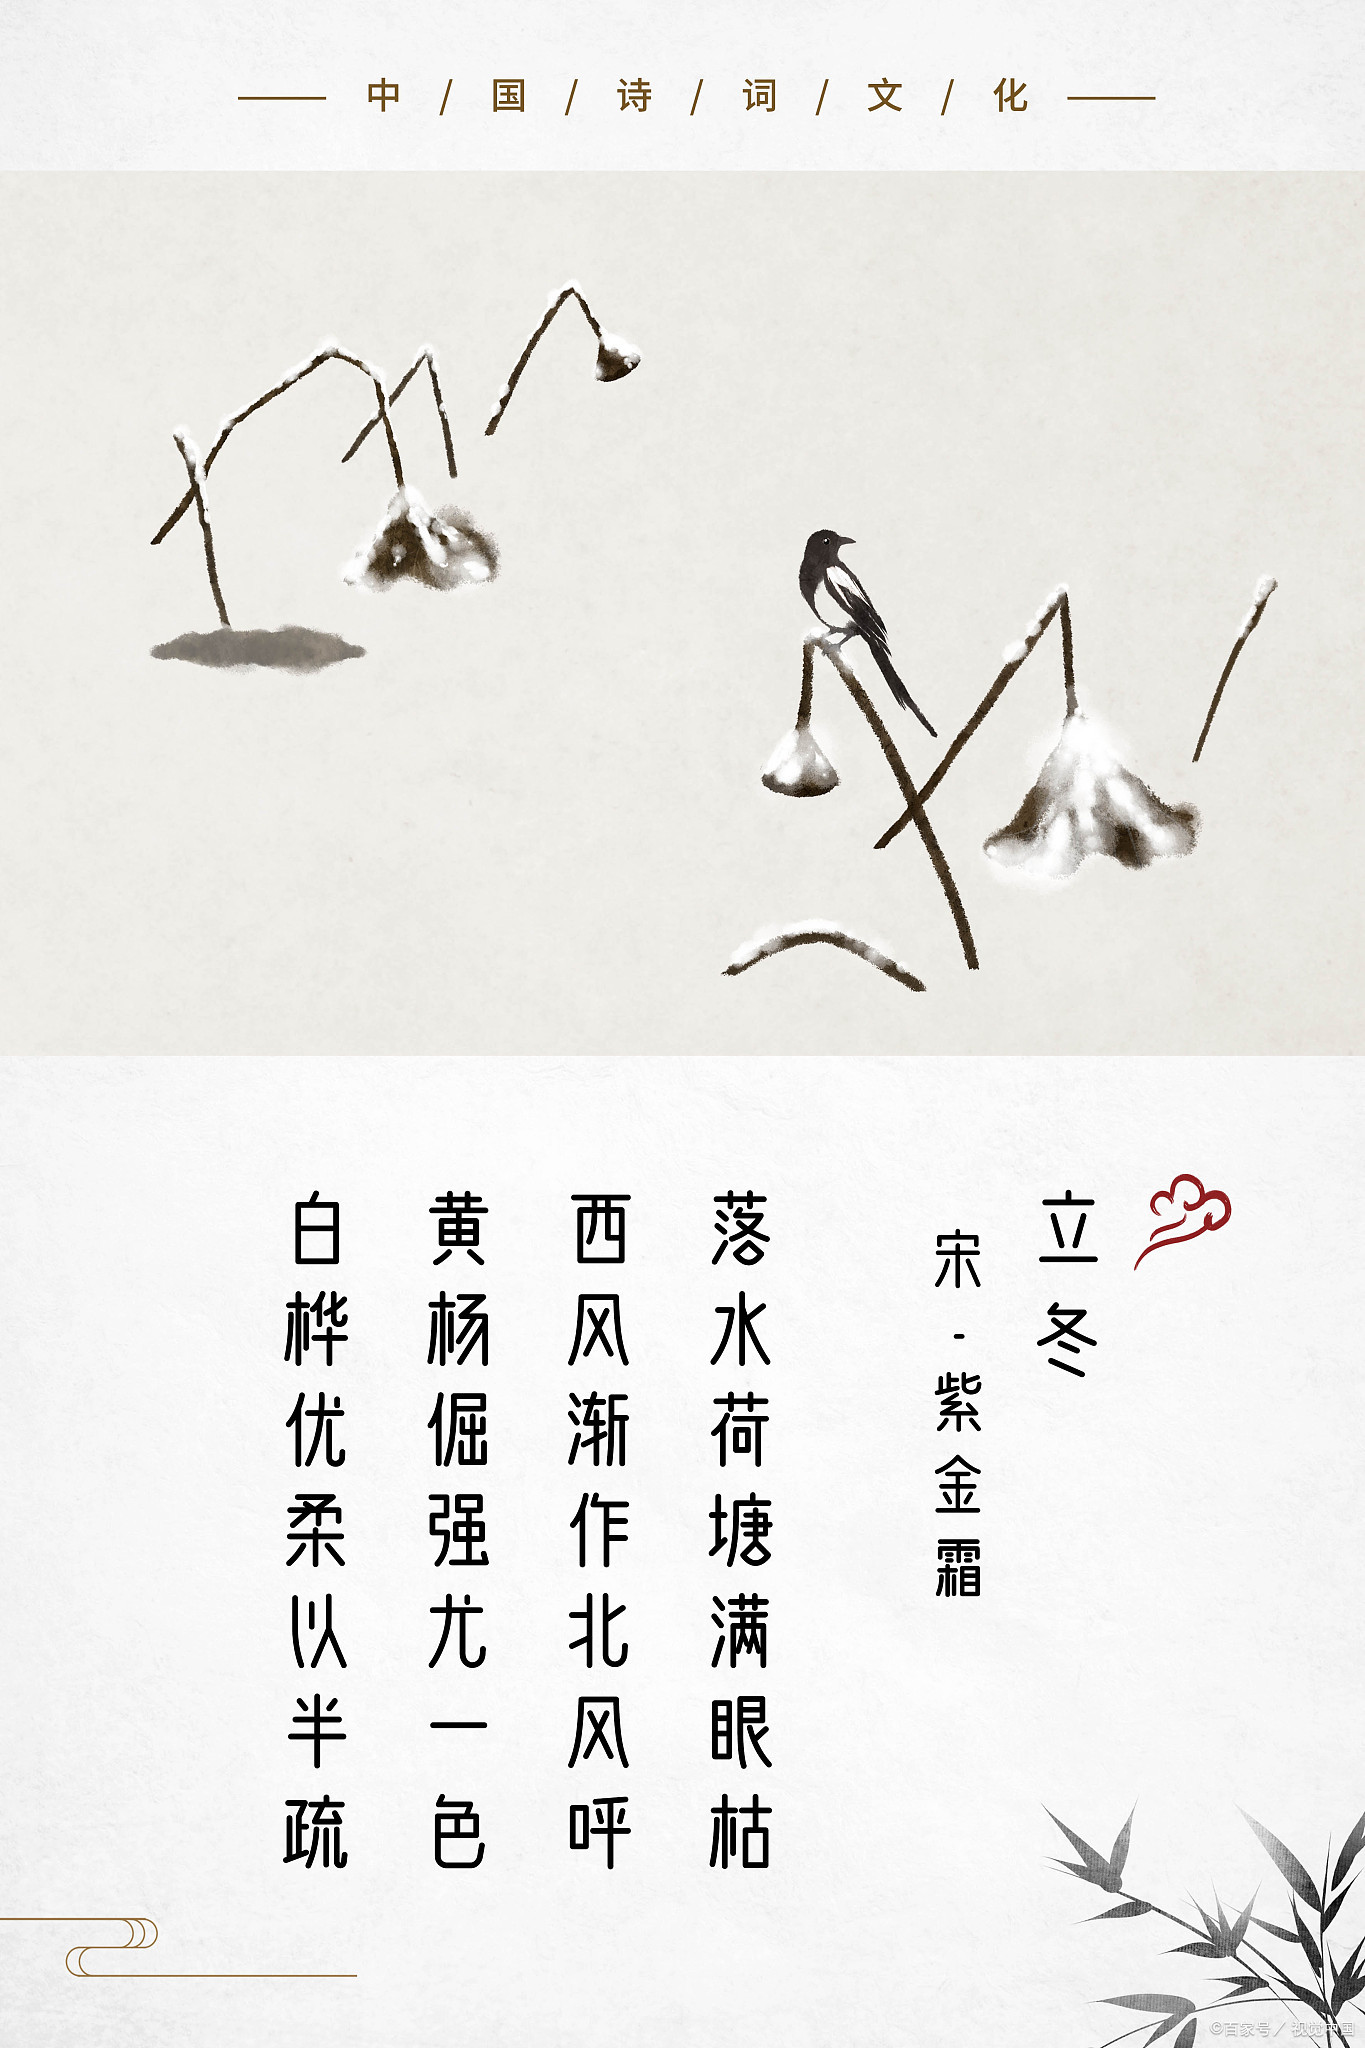 中/国/诗/词/文/化
立冬
宋-紫金霜
落水荷塘满眼枯
西风渐作北风呼
黄杨倔强尤一色
白桦优柔以半疏
©百家号/视觉中国